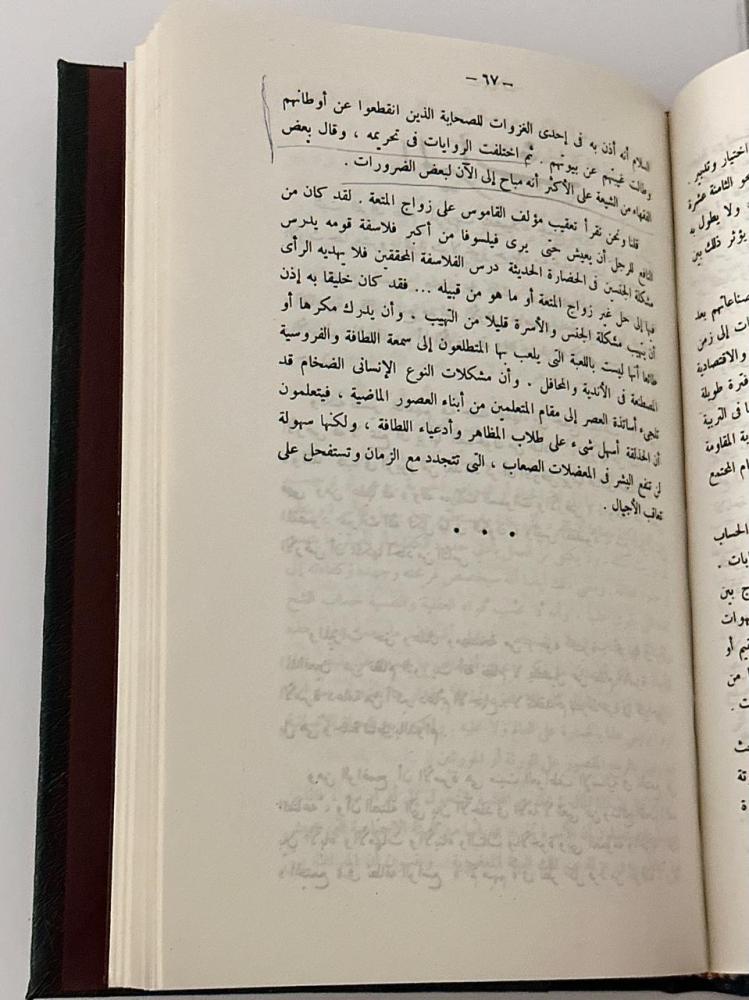 — ٦٧ —
السلام أنه أذن به فى إحدى الغزوات للصحابة الذين انقطعوا عن أوطانهم
وطالت غيبتهم عن بيوتهم . ثم اختلفت الروايات فى تحريمه ، وقال بعض
الفقهاء من الشيعة على الأكثر أنه مباح إلى الآن لبعض الضرورات .
قلنا ونحن نقرأ تعقيب مؤلف القاموس على زواج المتعة . لقد كان من
النافع للرجل أن يعيش حتى يرى فيلسوفا من أكبر فلاسفة قومه يدرس
مشكلة الجنسين فى الحضارة الحديثة درس الفلاسفة المحققين فلا يهديه الرأى
فيها إلى حل غير زواج المتعة أو ما هو من قبيله ... فقد كان خليقا به إذن
أن يتهيب مشكلة الجنس والأسرة قليلا من التهيب . وأن يدرك مكرها أو
طائعا أنها ليست باللعبة التى يلعب بها المتطلعون إلى سمعة اللطافة والفروسية
المصطنعة فى الأندية والمحافل . وأن مشكلات النوع الإنسانى الضخام قد
تلجىء أساتذة العصر إلى مقام المتعلمين من أبناء العصور الماضية ، فيتعلمون
أن الحذلقة أسهل شىء على طلاب المظاهر وأدعياء اللطافة ، ولكنها سهولة
لن تنفع البشر فى المعضلات الصعاب ، التى تتجدد مع الزمان وتستفحل على
تعاقب الأجيال .
• • •
اختيار وتدبير .
الثامنة عشرة
ولا يطول به
يؤثر ذلك بين
بعد
إلى زمن
والاقتصادية
فترة طويلة
فى التربية
المقاومة
المجتمع
الحساب
بين
أو
من